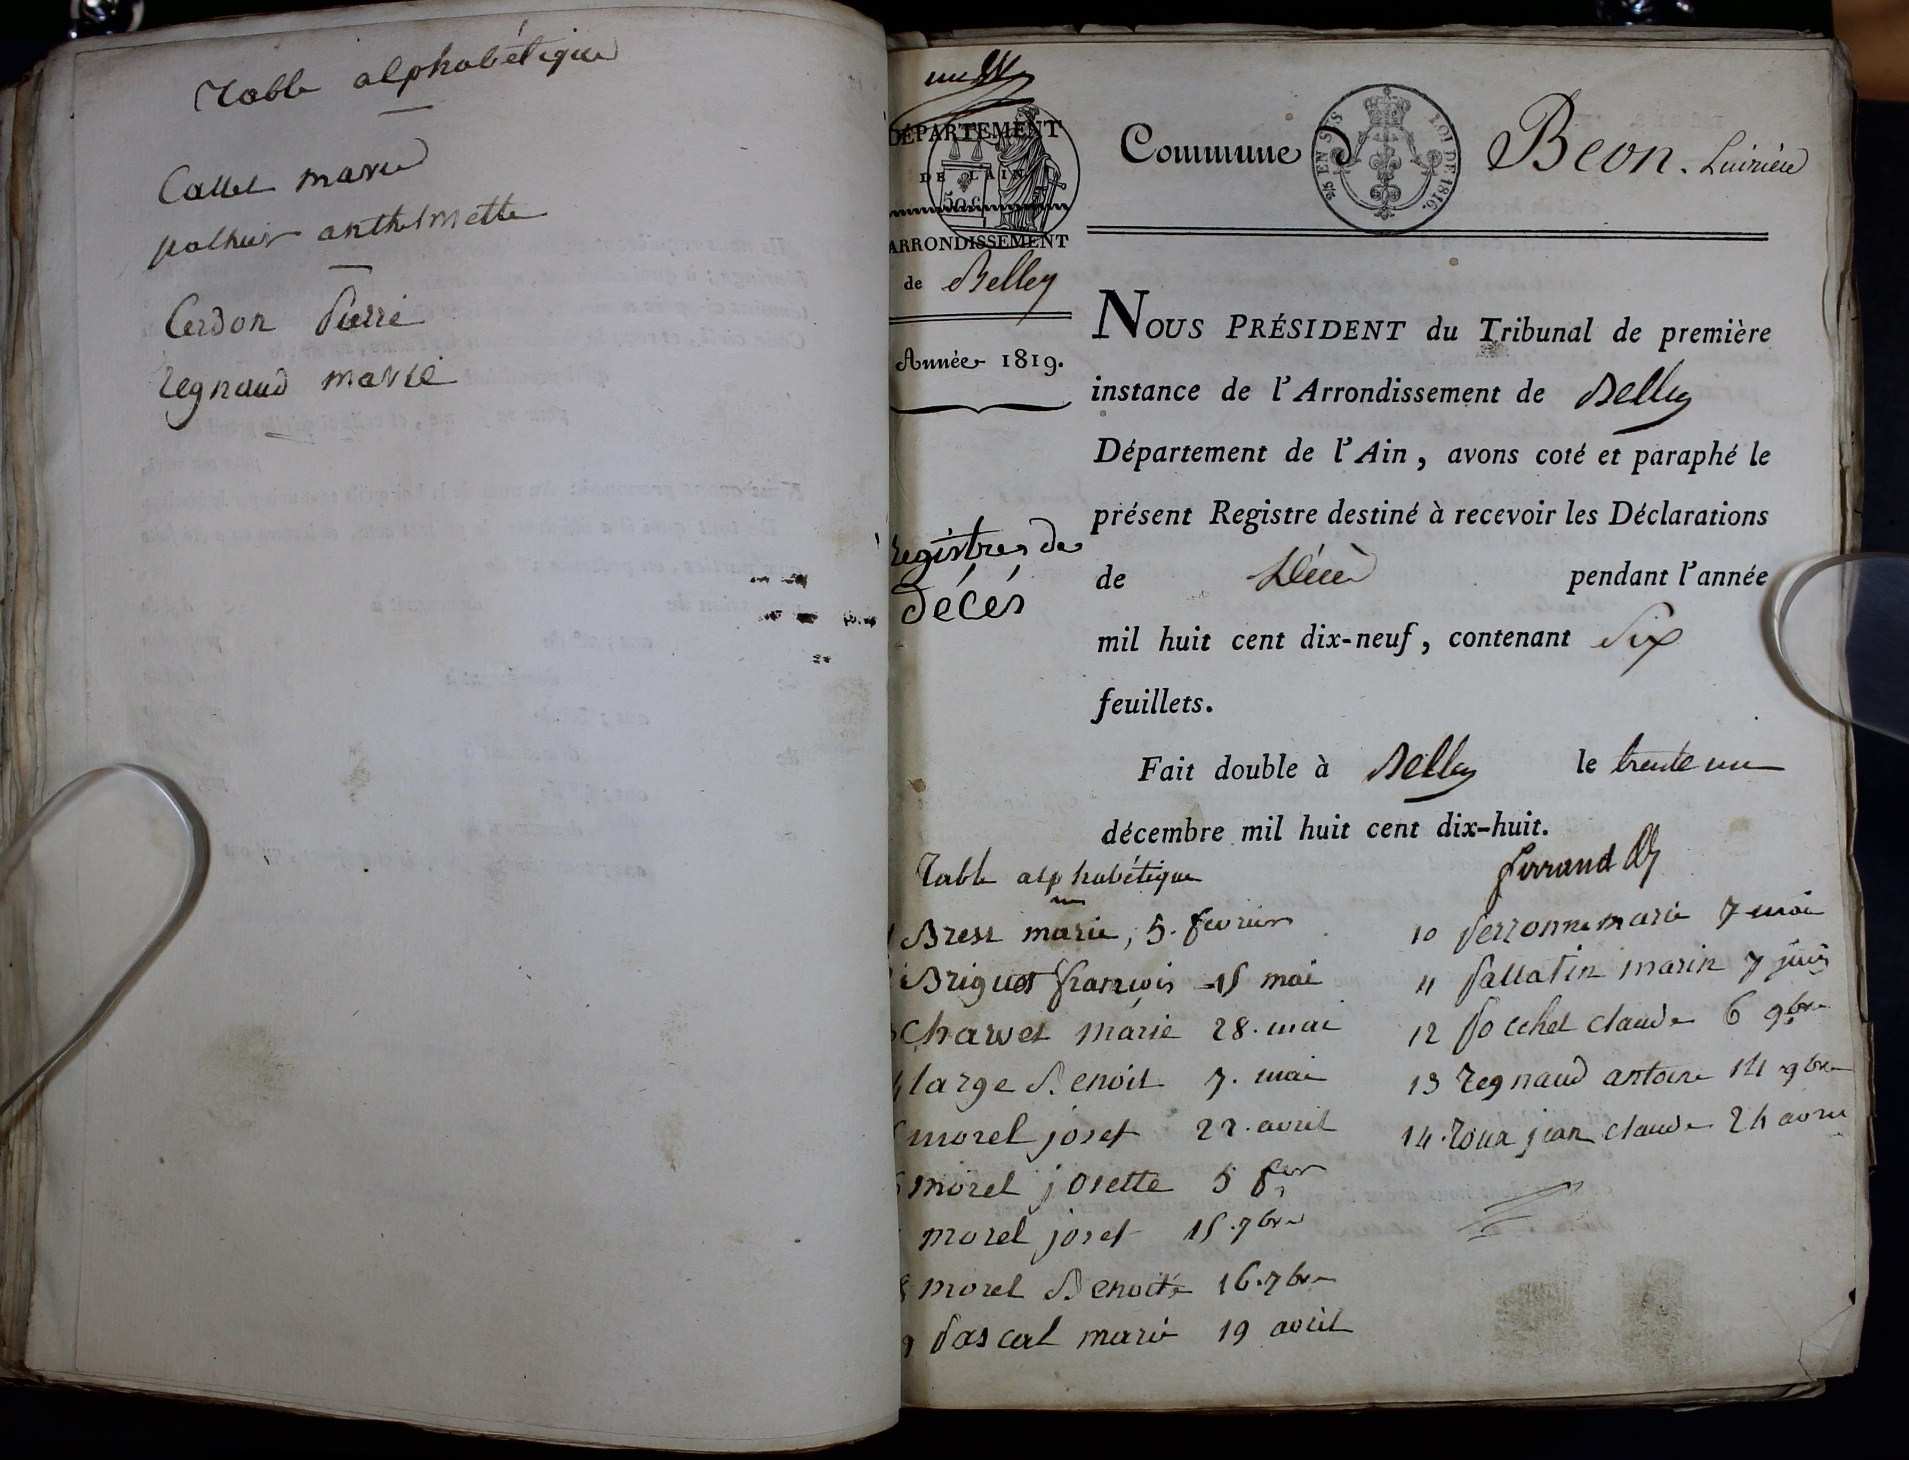 Table alphabétique
Callet marie
palhuis anthelmette
Cerdon Pierre
regnaud marie
DÉPARTEMENT
DE L'AIN
50 C
ARRONDISSEMENT
de Belley
Année 1819.
registres de
décés
Commune d
25 EN SUS
LOI DE 1816.
Beon. Luirieu
NOUS PRÉSIDENT du Tribunal de première
instance de l'Arrondissement de Belley
Département de l'Ain, avons coté et paraphé le
présent Registre destiné à recevoir les Déclarations
de Décès pendant l'année
mil huit cent dix-neuf, contenant Six
feuillets.
Fait double à Belley le trente un
décembre mil huit cent dix-huit.
Table alphabétique
Bress marie, 5. fevrier
Briguet françois 15 mai
Charvet marie 28. mai
large Benoit 7. mai
morel josef 22. avril
morel josette 5 fer
morel josef 15. 7bre
8 morel Benoite 16. 7bre
9 Pascal marie 19 avril
10 Perronne marie 7 mai
11 Pallatin marin 7 juin
12 Pochet claude 6 9bre
13 regnaud antoine 14 9bre
14. roux jean claude 24 avril